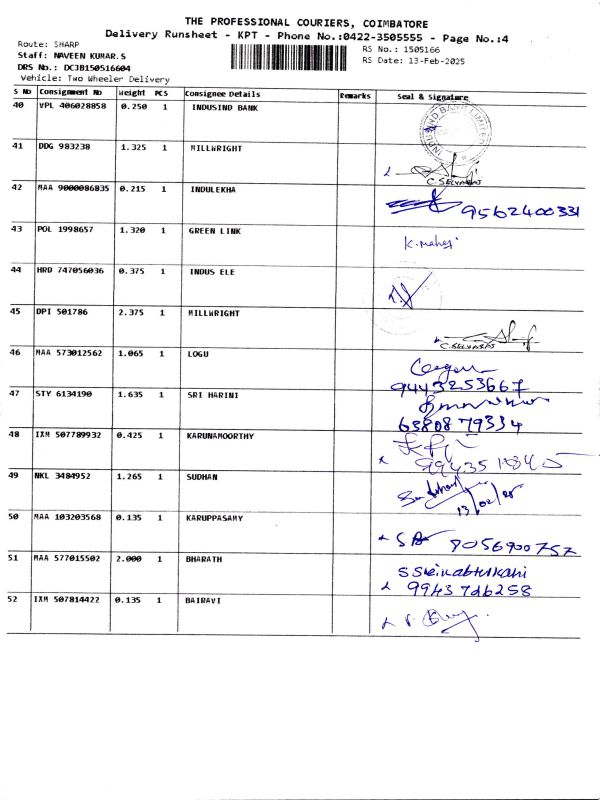 THE PROFESSIONAL COURIERS, COIMBATORE
Delivery Runsheet - KPT - Phone No.:0422-3505555 - Page No.:4
Route: SHARP
RS No.: 1505166
Staff: NAVEEN KUMAR.S
RS Date: 13-Feb-2025
DRS No.: DCJB150516604
Vehicle: Two Wheeler Delivery
S No Consignment No Weight PCS Consignee Details Remarks Seal & Signature
40 VPL 406028858 0.250 1 INDUSIND BANK
INDUSIND BANK LIMITED
41 DDG 983238 1.325 1 MILLWRIGHT
C. SELVARAJ
42 MAA 9000086835 0.215 1 INDULEKHA
9562400331
43 POL 1998657 1.320 1 GREEN LINK
K. Mahesi
44 HRD 747056036 0.375 1 INDUS ELE
45 DPI 501786 2.375 1 MILLWRIGHT
C. SELVARAJ
46 MAA 573012562 1.065 1 LOGU
9443253667
47 STY 6134190 1.635 1 SRI HARINI
6380879334
48 IXM 507789932 0.425 1 KARUNAMOORTHY
49 NKL 3484952 1.265 1 SUDHAN
13/02/25
50 MAA 103203568 0.135 1 KARUPPASAMY
9056900757
51 MAA 577015502 2.000 1 BHARATH
9943746258
52 IXM 507814422 0.135 1 BAIRAVI